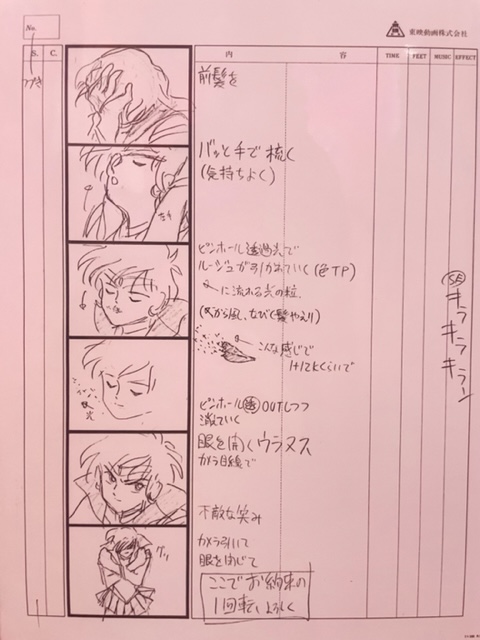 No.
東映動画株式会社
S. C. 内 容 TIME FEET MUSIC EFFECT
つづき
前髪を
バッと手で梳く
(気持ちよく)
ピンホール透過光で
ルージュが引かれていく(色TP)
に流れる光の粒
風、なびく髪やえり)
こんな感じで
1+12kくらいで
ピンホール透OUTしつつ
消えていく
眼を開くウラヌス
カメラ目線で
不敵な笑み
カメラ引いて
眼を閉じて
ここでお約束の
1回転、よろしく
SE
キラ
キラ
キラーン